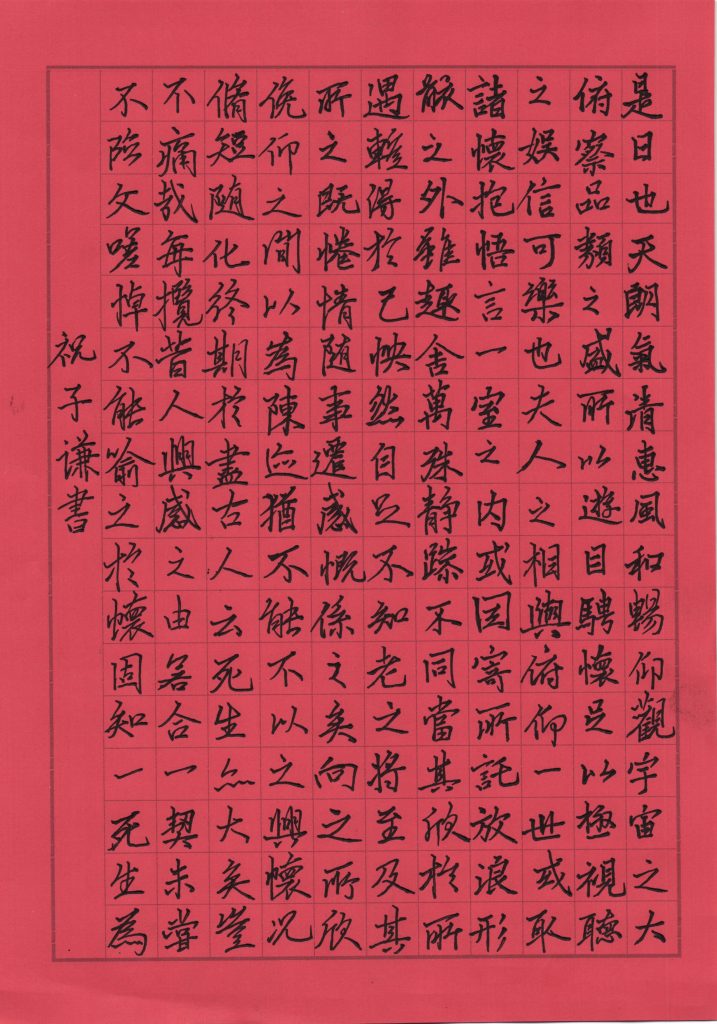 是日也天朗氣清惠風和暢仰觀宇宙之大
俯察品類之盛所以遊目騁懷足以極視聽
之娛信可樂也夫人之相與俯仰一世或取
諸懷抱悟言一室之内或因寄所託放浪形
骸之外雖趣舍萬殊静躁不同當其欣於所
遇暫得於己怏然自足不知老之將至及其
所之既惓情随事遷感慨係之矣向之所欣
俛仰之間以為陳迹猶不能不以之興懷況
脩短随化終期於盡古人云死生亦大矣豈
不痛哉每攬昔人興感之由若合一契未嘗
不臨文嗟悼不能喻之於懷固知一死生為
祝子谦書